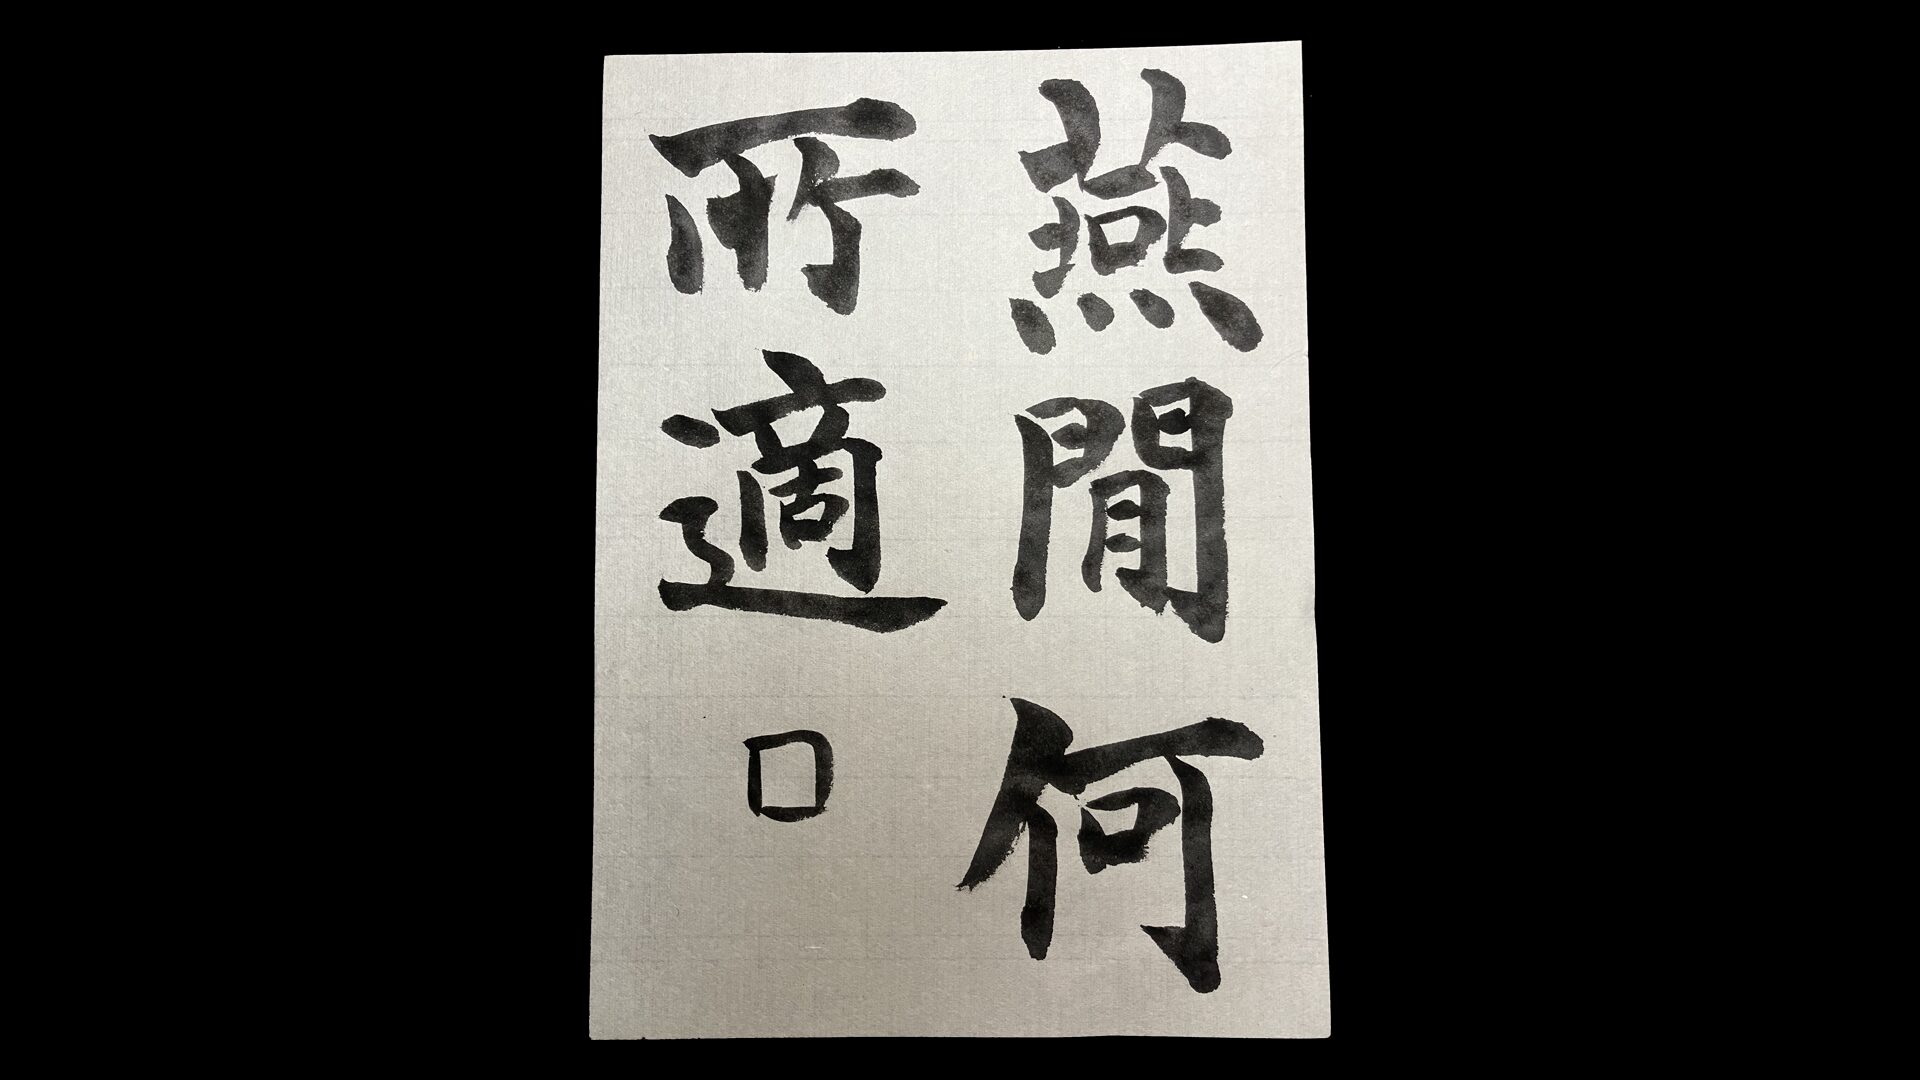 燕閒何
所適口